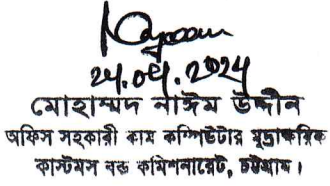 ২৪.০৭.২০২৪
মোহাম্মদ নাঈম উদ্দীন
অফিস সহকারী কাম কম্পিউটার মুদ্রাক্ষরিক
কাস্টমস বন্ড কমিশনারেট, চট্টগ্রাম।